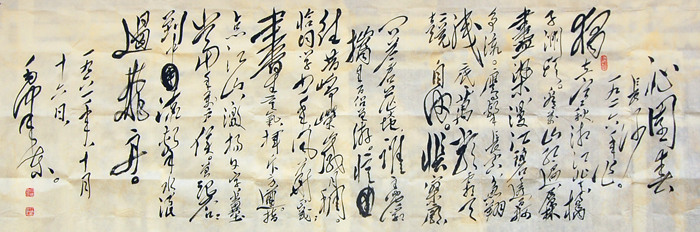 沁园春
长沙
一九二六年作。
独立寒秋湘江北去橘
子洲头看万山红遍层林
尽染漫江碧透百舸
争流。鹰击长空鱼翔
浅底万类霜天
竞自由。怅寥廓
问苍茫大地谁主沉浮
携来百侣曾游。忆
往昔峥嵘岁月稠。
恰同学少年风华正茂
书生意气挥斥方遒指
点江山激扬文字粪土
当年万户侯。曾记否
到中流击水浪
遏飞舟。
一九六一年十月
十六日。
毛泽东。